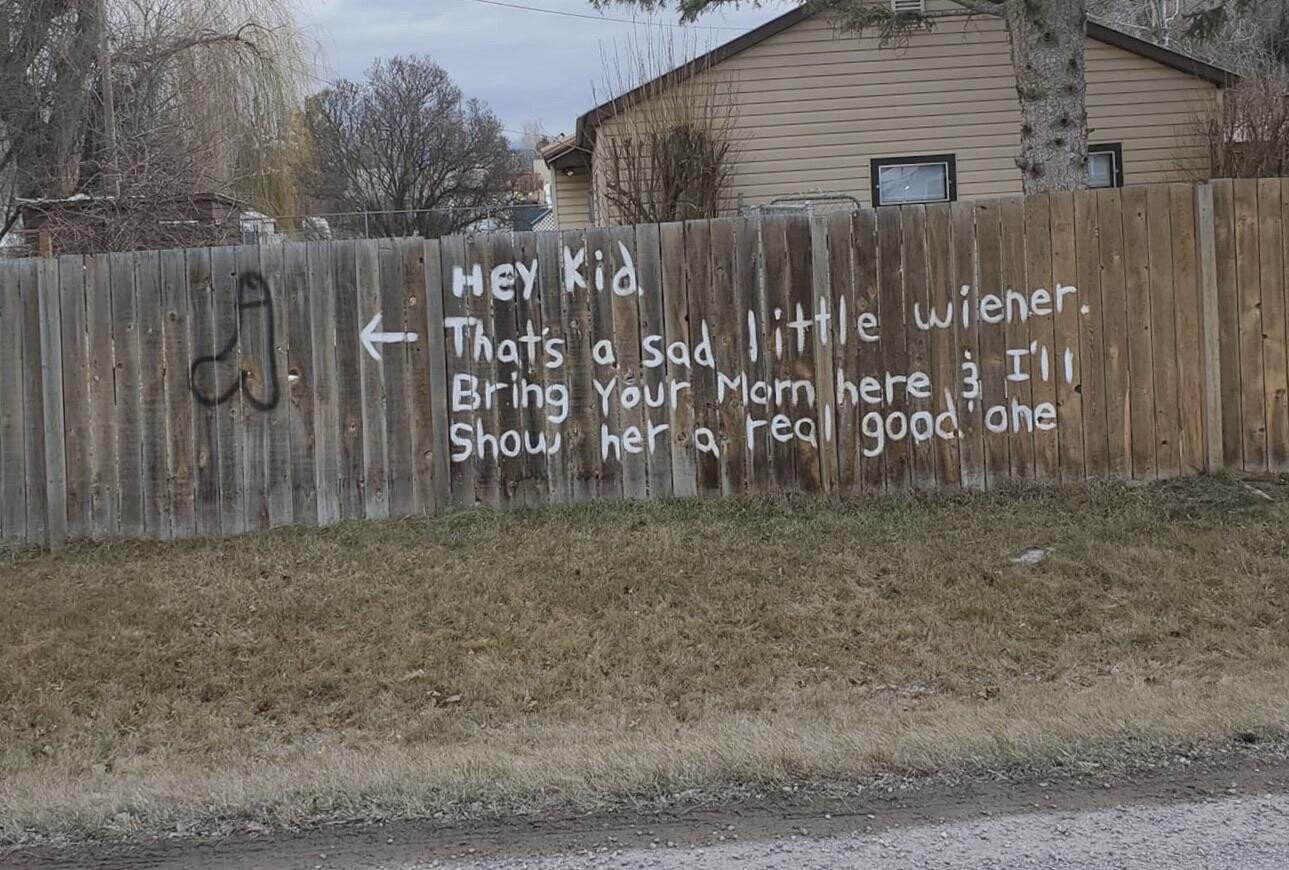 Hey Kid.
← That's a sad little wiener.
Bring Your Mom here & I'll
Show her a real good one